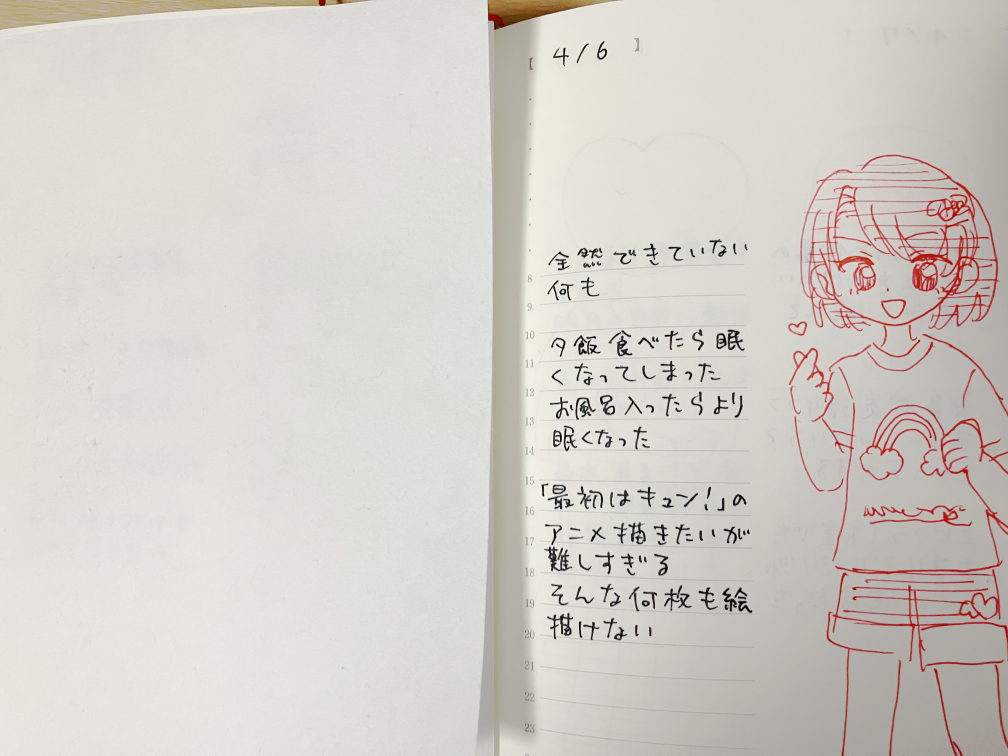 【 4/6 】
全然できていない
8
何も
9
10
夕飯食べたら眠
11
くなってしまった
12
お風呂入ったらより
13
眠くなった
14
15
「最初はキュン!」の
16
アニメ描きたいが
17
難しすぎる
18
そんな何枚も絵
19
描けない
20
21
22
23